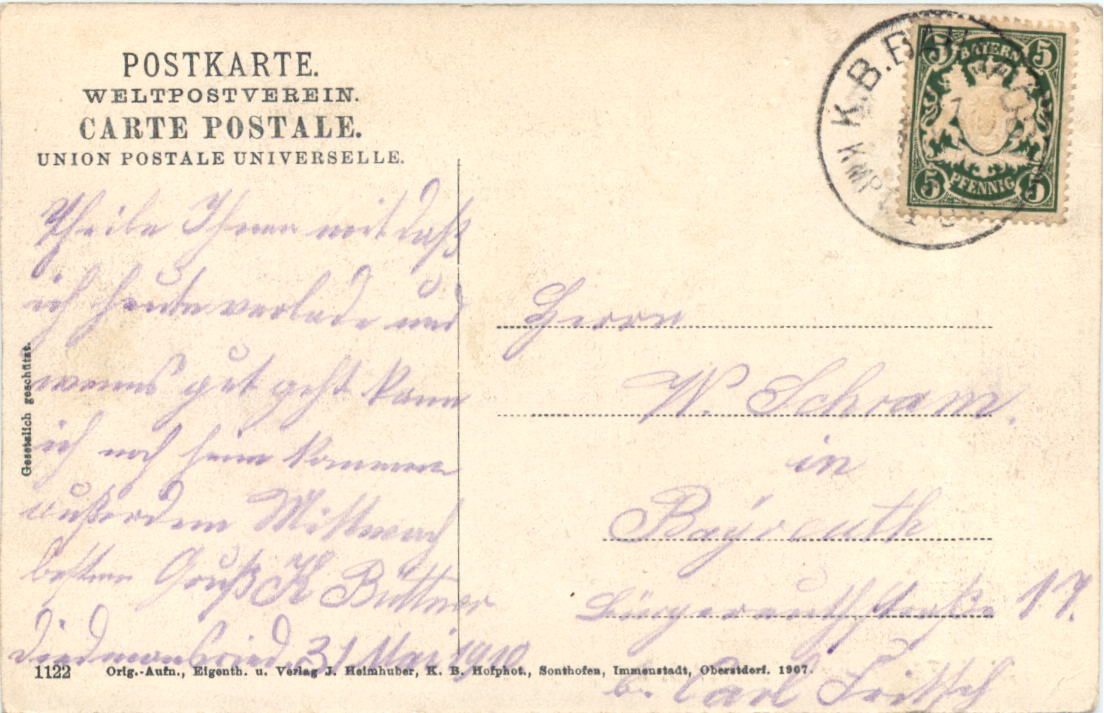 POSTKARTE.
WELTPOSTVEREIN.
CARTE POSTALE.
UNION POSTALE UNIVERSELLE.
K.B.BAHNPOST
KMPT
5 BAYERN 5
5 PFENNIG 5
Theile Ihnen mit daß
ich heute verlade und
wenns gut geht kann
ich noch heim kommen
außerdem Mittwoch
besten Gruß K Büttner
Diedmansried 31 Mai 1910
Herrn
W. Schram.
in
Bayreuth
Bürgerreuthstraße 17.
b. Carl Fritsch
Gesetzlich geschützt.
1122 Orig.-Aufn., Eigenth. u. Verlag J. Heimhuber, K. B. Hofphot., Sonthofen, Immenstadt, Oberstdorf. 1907.